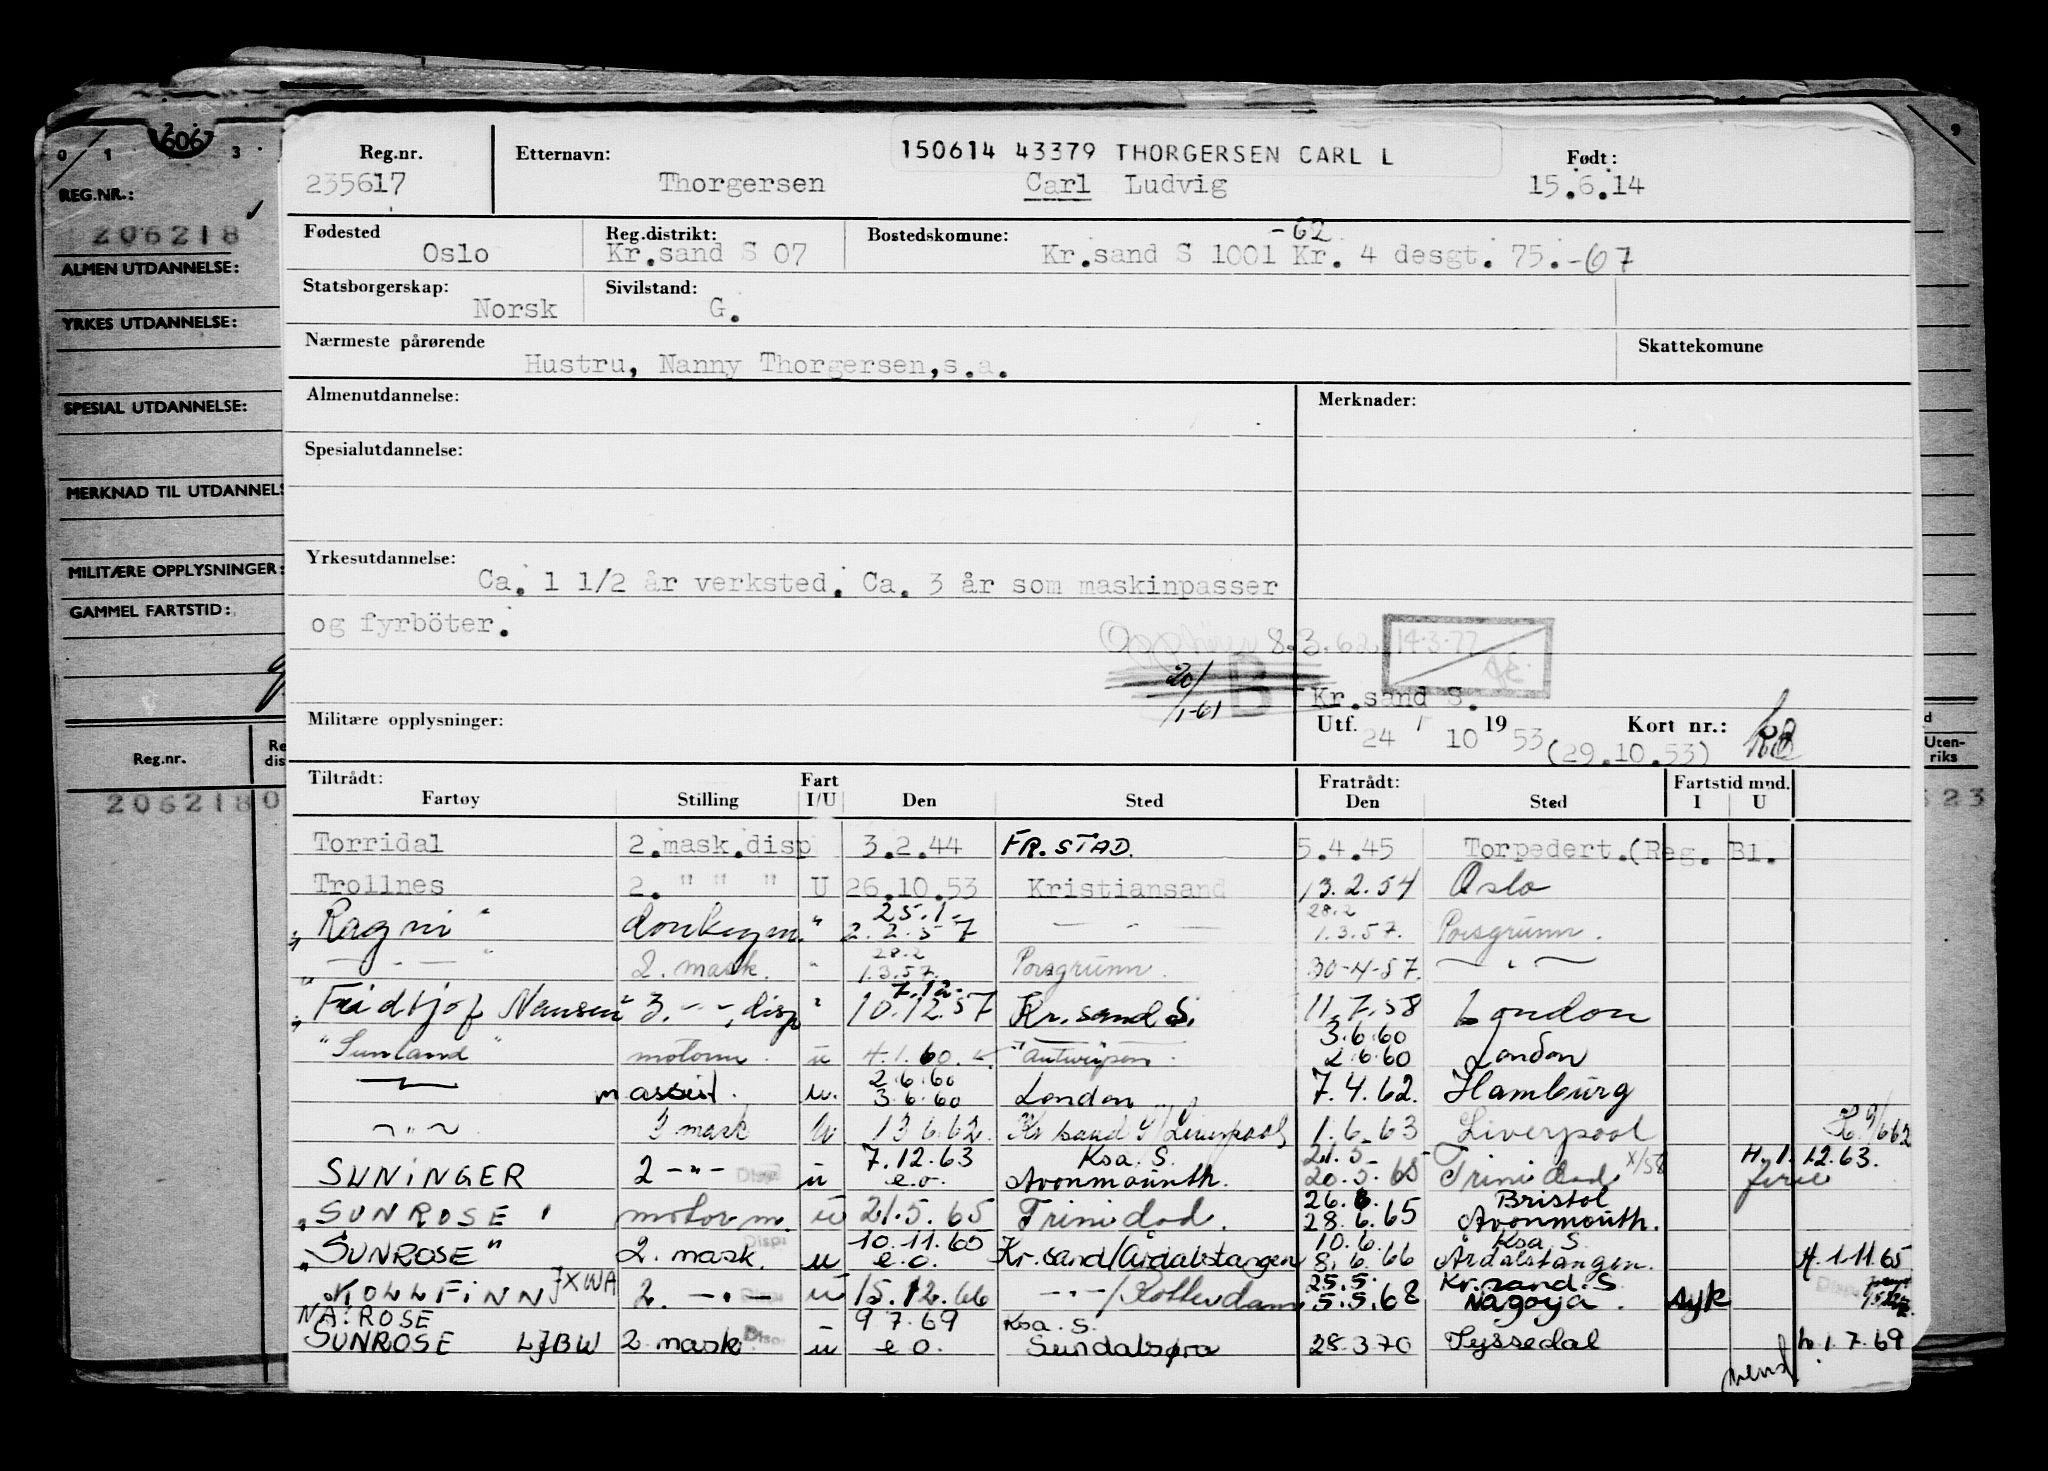 606
0 1 3
9
REG.NR.:
206218
ALMEN UTDANNELSE:
YRKES UTDANNELSE:
SPESIAL UTDANNELSE:
MERKNAD TIL UTDANNELS
MILITÆRE OPPLYSNINGER:
GAMMEL FARTSTID:
Reg.nr.
Re
dis
2062180
d
Uten-
riks
523
150614 43379 THORGERSEN CARL L
Reg.nr. Etternavn: Født:
235617 Thorgersen Carl Ludvig 15.6.14
-62
Fødested Reg.distrikt: Bostedskomune:
Oslo Kr.sand S 07 Kr.sand S 1001 Kr. 4 desgt. 75.-67
Statsborgerskap: Sivilstand:
Norsk G.
Nærmeste pårørende Skattekomune
Hustru, Nanny Thorgersen,s.a.
Almenutdannelse: Merknader:
Spesialutdannelse:
Yrkesutdannelse:
Ca. 1 1/2 år verksted. Ca. 3 år som maskinpasser
og fyrböter.
8.3.62 14.3.77
20/1-61 B Kr.sand S.
Militære opplysninger: Utf. 24 / 10 1953 (29.10.53) Kort nr.:
Tiltrådt: Fart Fratrådt: Fartstid mnd.
Fartøy Stilling I/U Den Sted Den Sted I U
Torridal 2.mask.disp 3.2.44 FR.STAD. 5.4.45 Torpedert.(Reg. Bl.
Trollnes 2. " " " U 26.10.53 Kristiansand 13.2.54 Oslo
25.1- 28.2
"Ragni" donkeym. " 2.2.57 — " — 1.3.57. Porsgrunn.
28.2
" — " — " 2. mask. " 1.3.57. Porsgrunn. 30-4-57. — " —
7.12-
"Fridtjof Nansen" 3. - " -, disp " 10.12.57 Kr.sand S. 11.7.58 London
3.6.60
"Sunland" motorm. u 4.1.60. Antwerpen. 2.6.60 London
2.6.60
— " — m assist. u. 3.6.60 London 7.4.62. Hamburg
— " — 3 mask u 13.6.62. Kr sand S/Liverpool 1.6.63 Liverpool
7.12.63 Ksa. S. 21.5- H. 1.12.63.
SUNINGER 2 - " - Disp u e.o. Avonmounth. 20.5.65 Trinidad ferie
26.6. Bristol
"SUNROSE" motorm. u 21.5.65 Trinidad. 28.6.65 Avonmouth.
10.11.65 10.6. Ksa S.
"SUNROSE" 2. mask. Disp u e.o. Kr.sand/Årdalstangen 8.6.66 Årdalstangen. H. 1.11.65
25.5. Kr.sand. S.
KOLLFINN JXWA 2. - " - u 15.12.66 - " -/Rotterdam 5.5.68 Nagoya. Ayk
NA: ROSE 9 7.69 Ksa. S.
SUNROSE LJBW 2. mask. Disp. u e o. Sundalsøra 28.3.70 Tyssedal h. 1.7.69
vend